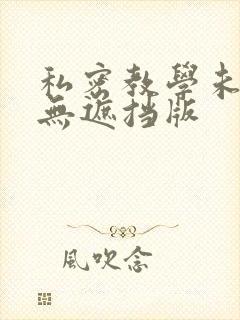 私密教學未
無遮挡版
風吹念